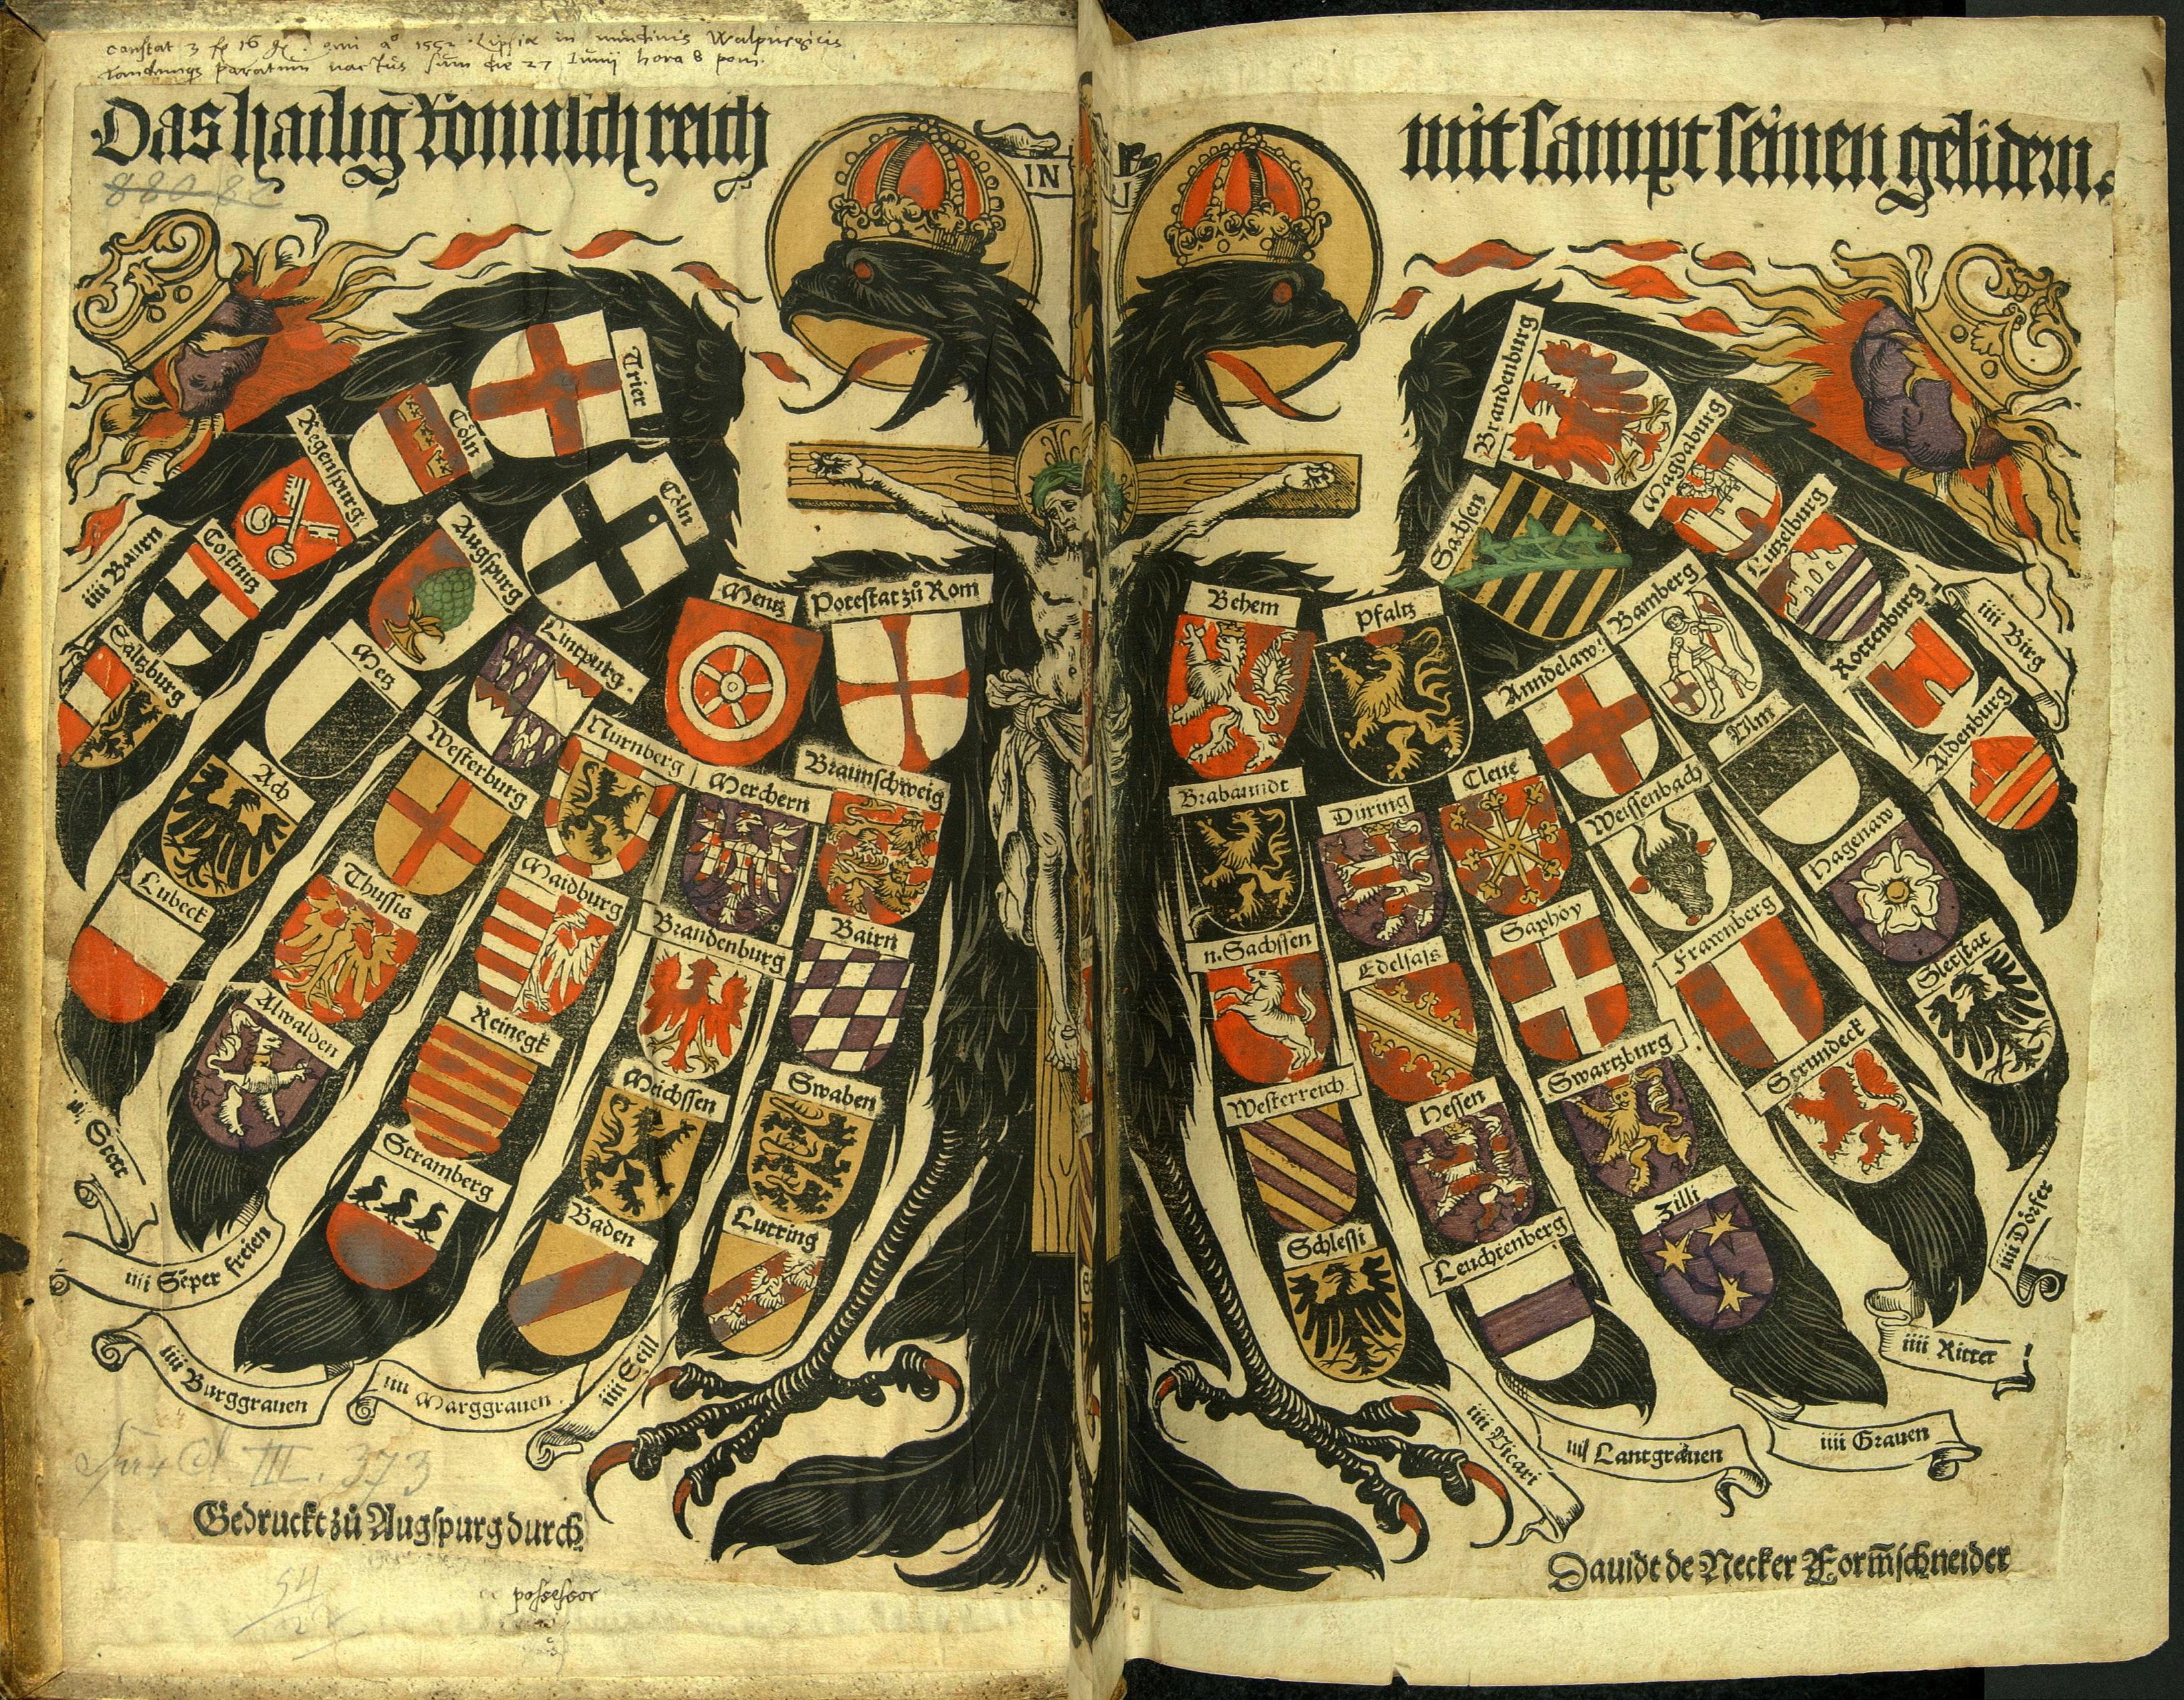 constat 3 fl 16 gr. emi aº 1552 Lipsiæ in nundinis Walpurgicis
nactus sum die 27 Iunij hora 8 pom.
Das hailig Römisch reich mit sampt seinen gelidern.
88080
IN RI
Trier
Cöln
Regenspurg.
Costnitz
iiii Baurn
Saltzburg
Cöln
Augspurg
Metz
Ach
Lubeck
iiii Stett
Mentz
Lutzpurg.
Westerburg
Thussis
Alwalden
iiii Semper freien
Potestat zů Rom
Nurnberg
Maidburg
Reinegk
Stramberg
iiii Burggrauen
Merchern
Brandenburg
Meichssen
Baden
iiii Marggrauen.
Braunschweig
Bairn
Swaben
Lutring
iiii Seill
Behem
Brabanndt
n. Sachssen
Westerreich.
Schlessi
iiii Vicari
Pfaltz
Düring
Edelsass
Hessen
Leuchtenberg
iiii Lantgrauen
Sachsen
Cleue
Saphoy
Swartzburg
Zilli
iiii Grauen
Brandenburg
Anndelaw.
Weissenbach
Frawnberg
Strundeck
iiii Ritter
Magdaburg
Bamberg
Ulm
Hagenaw
Sletstat
iiii Dörfer
Lützelburg
Rottenburg
Aldenburg
iiii Birg
III. 373
Gedruckt zů Augspurg durch
Dauidt de Necker Formschneider
54
possessor